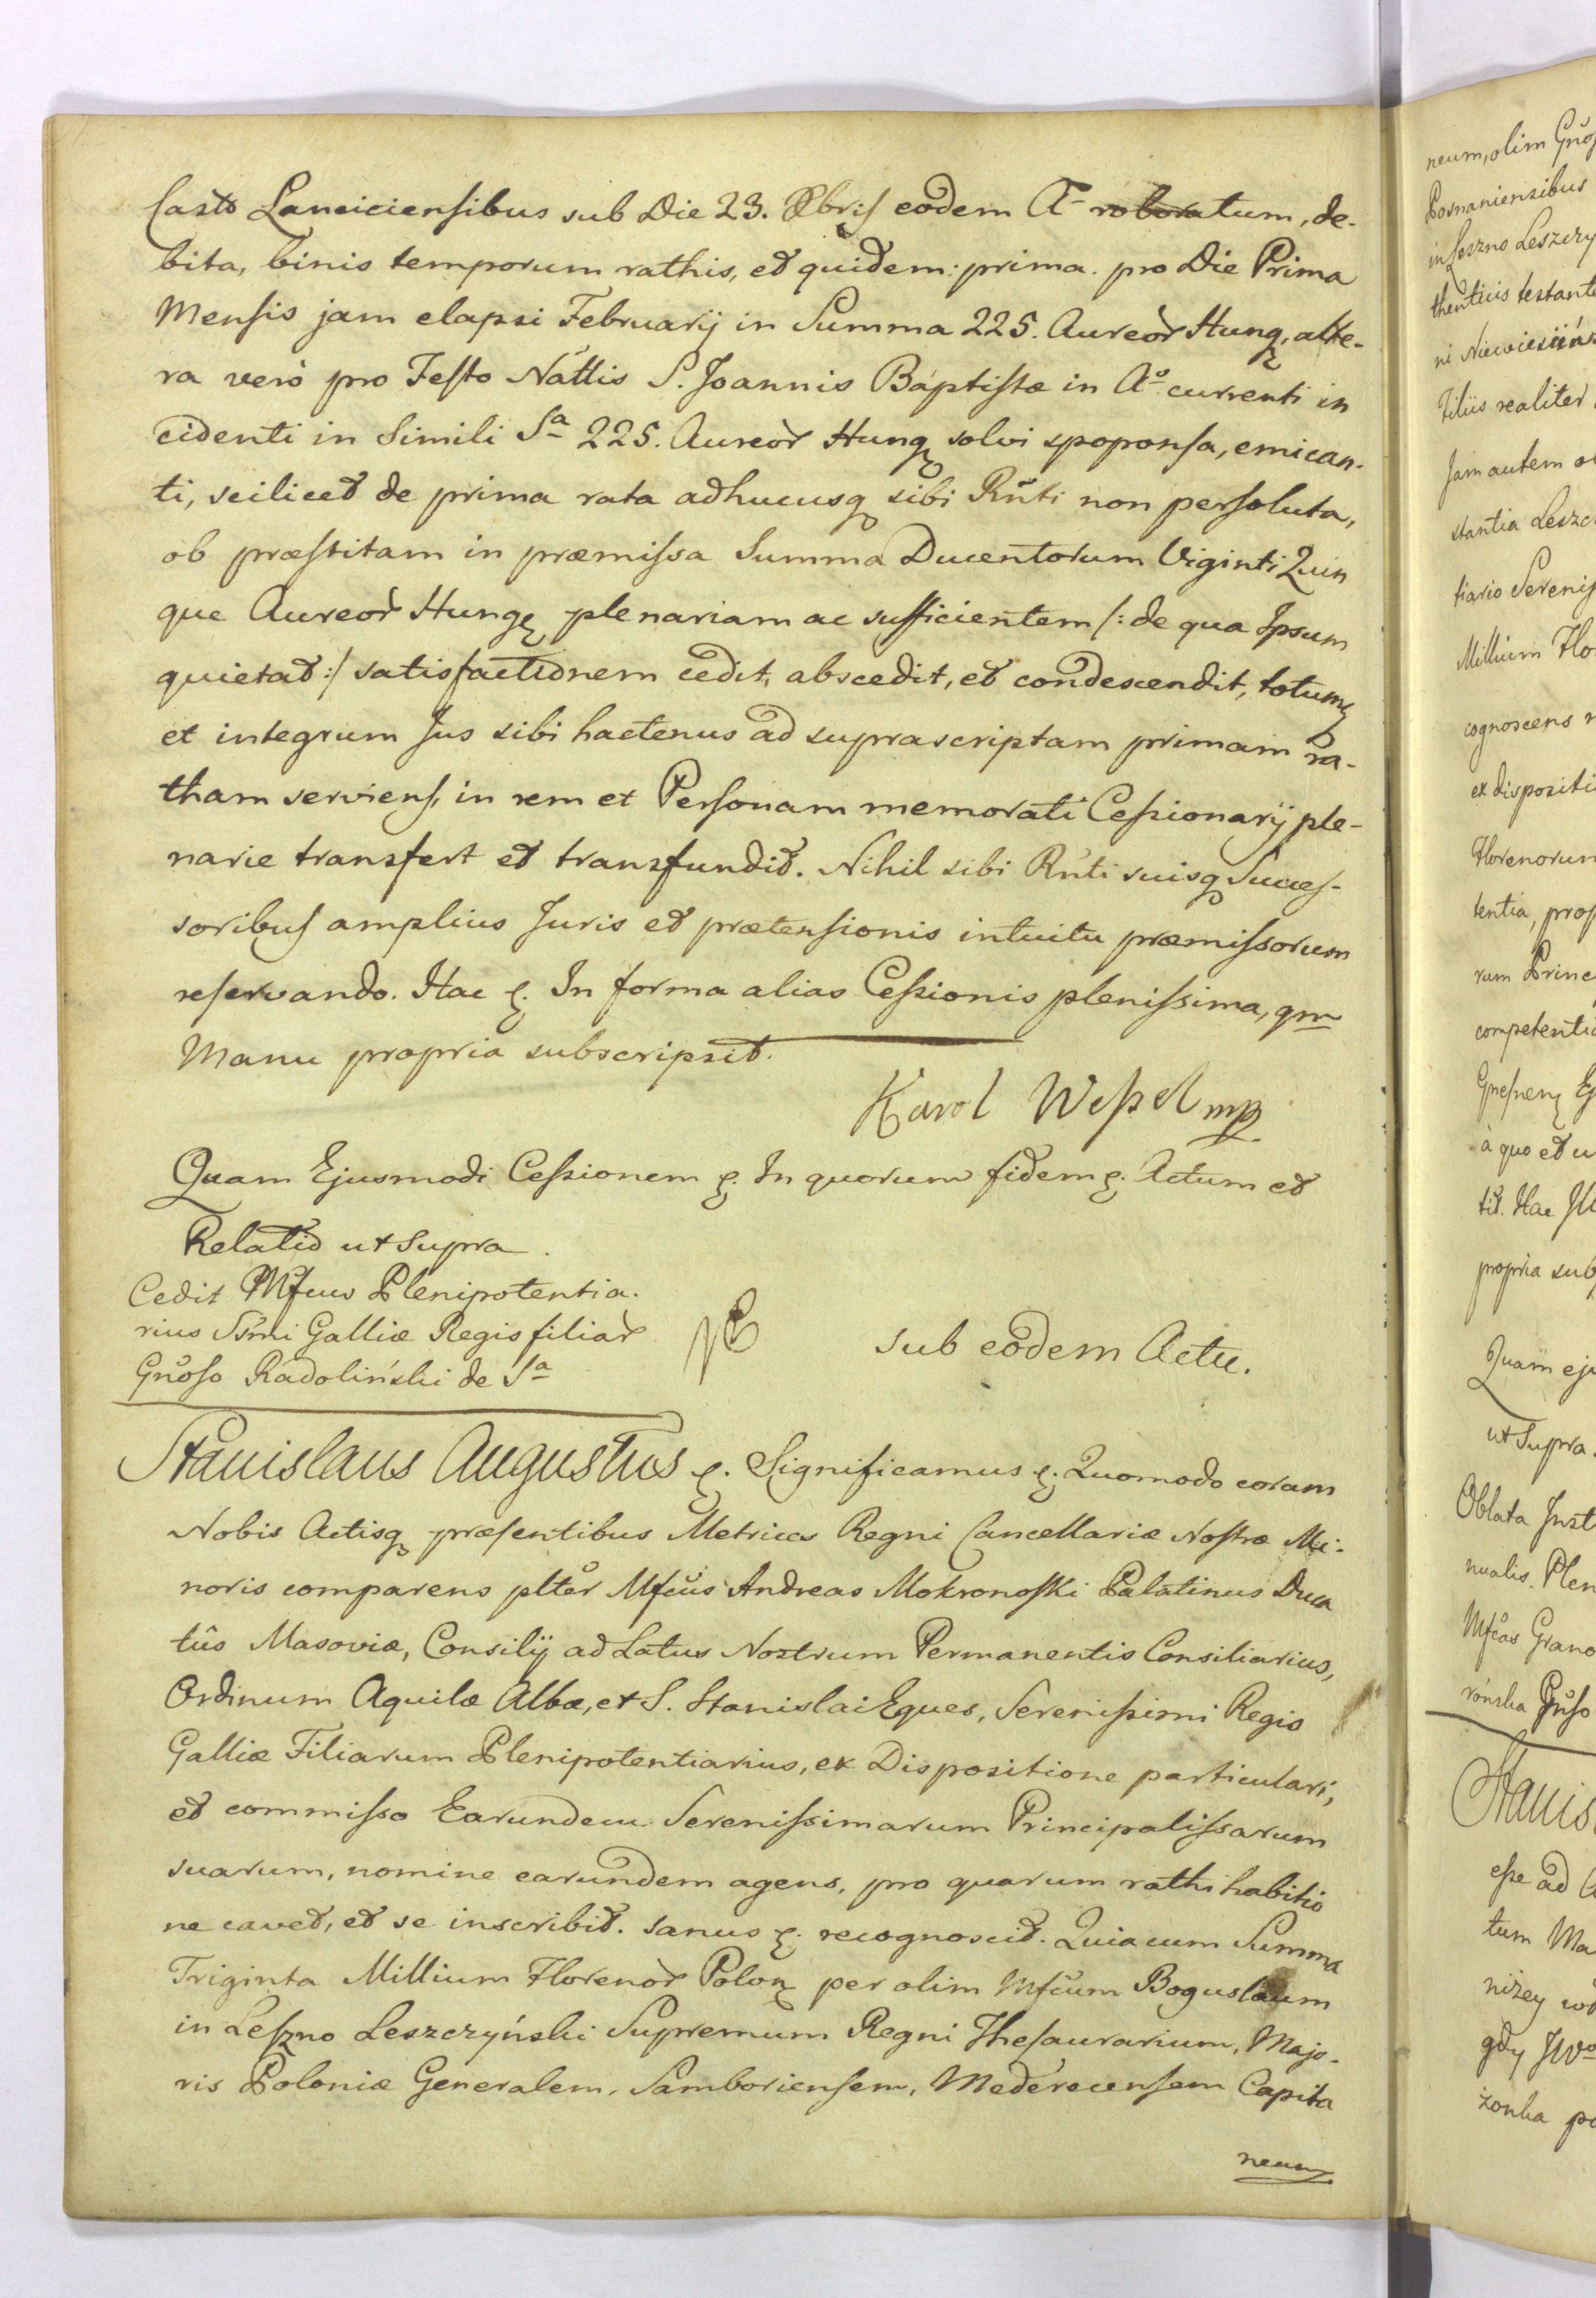 Casto Lanciciensibus sub Die 23. Xbris eodem A– roboratum, de-
bita, binis temporum rathis, et quidem: prima. pro Die Prima
Mensis jam elapsi Februarij in Summa 225. Aureor Hung, alte-
ra verò pro Festo Nattis S. Joannis Baptistæ in Aº currenti in
cidenti in Simili Sª 225. Aureor Hung solvi spoponsa, emican-
ti, scilicet de prima rata adhucusq sibi Rñti non persoluta,
ob præstitam in præmissa Summa Ducentorum Viginti Quin
que Aureor Hung plenariam ac sufficientem /: de qua Ipsum
quietat :/ satisfactionem cedit, abscedit, et condescendit, totumq
et integrum Jus sibi hactenus ad suprascriptam primam Ra-
tham serviens, in rem et Personam memorati Cessionarij ple-
narie transfert et transfundit. Nihil sibi Rñti suisq Succes-
soribus amplius Juris et prætensionis intuitu præmissorum
reservando. Hac &. In forma alias Cessionis plenissima, qm
Manu propria subscripsit.
Karol Wessel mp.
Quam Ejusmodi Cessionem &. In quorum fidem &. Actum et
Relatio ut Supra.
Cedit Mfcus Plenipotentia-
rius Ssmi Galliæ Regis filiar
Gnoso Radoliński de Sª
sub eodem Actu.
Stanislaus Augustus &. Significamus &. Quomodo coram
Nobis Actisq præsentibus Metrices Regni Cancellariæ Nostræ Mi-
noris comparens plter Mfcus Andreas Mokronoski Palatinus Duca
tûs Masoviæ, Consilij ad Latus Nostrum Permanentis Consiliarius,
Ordinum Aquilæ Albæ, et S. Stanislai Eques, Serenissimi Regis
Galliæ Filiarum Plenipotentiarius, ex Dispositione particulari,
et commisso Earundem Serenissimarum Principalissarum
suarum, nomine earundem agens, pro quarum rathihabitio
ne cavet, et se inscribit. sanus &. recognoscit. Quia cum Summa
Triginta Millium Florenor Polon per olim Mfcum Boguslaum
in Leszno Leszczyński Supremum Regni Thesaurarium, Majo-
ris Poloniæ Generalem, Samboriensem, Mederecensem Capita
neum
neum, olim Gnos
Posnaniensibus
in Leszno Leszczy
thenticis testante
Filiis realiter
Jam autem
stantia Leszc
tiario Sereniss
Millium Flo
cognoscens
ex dispositi
Florenorum
tentia, prop
rum Princ
competenti
à quo et u
tit. Hac
propria sub
Quam eju
ut Supra.
Oblata Inst
nualis. Plen
Mfcos Grano
rońska Gnoso
Stanis
esse ad A
tum Ma
niżey
gdy JWo
żonka po